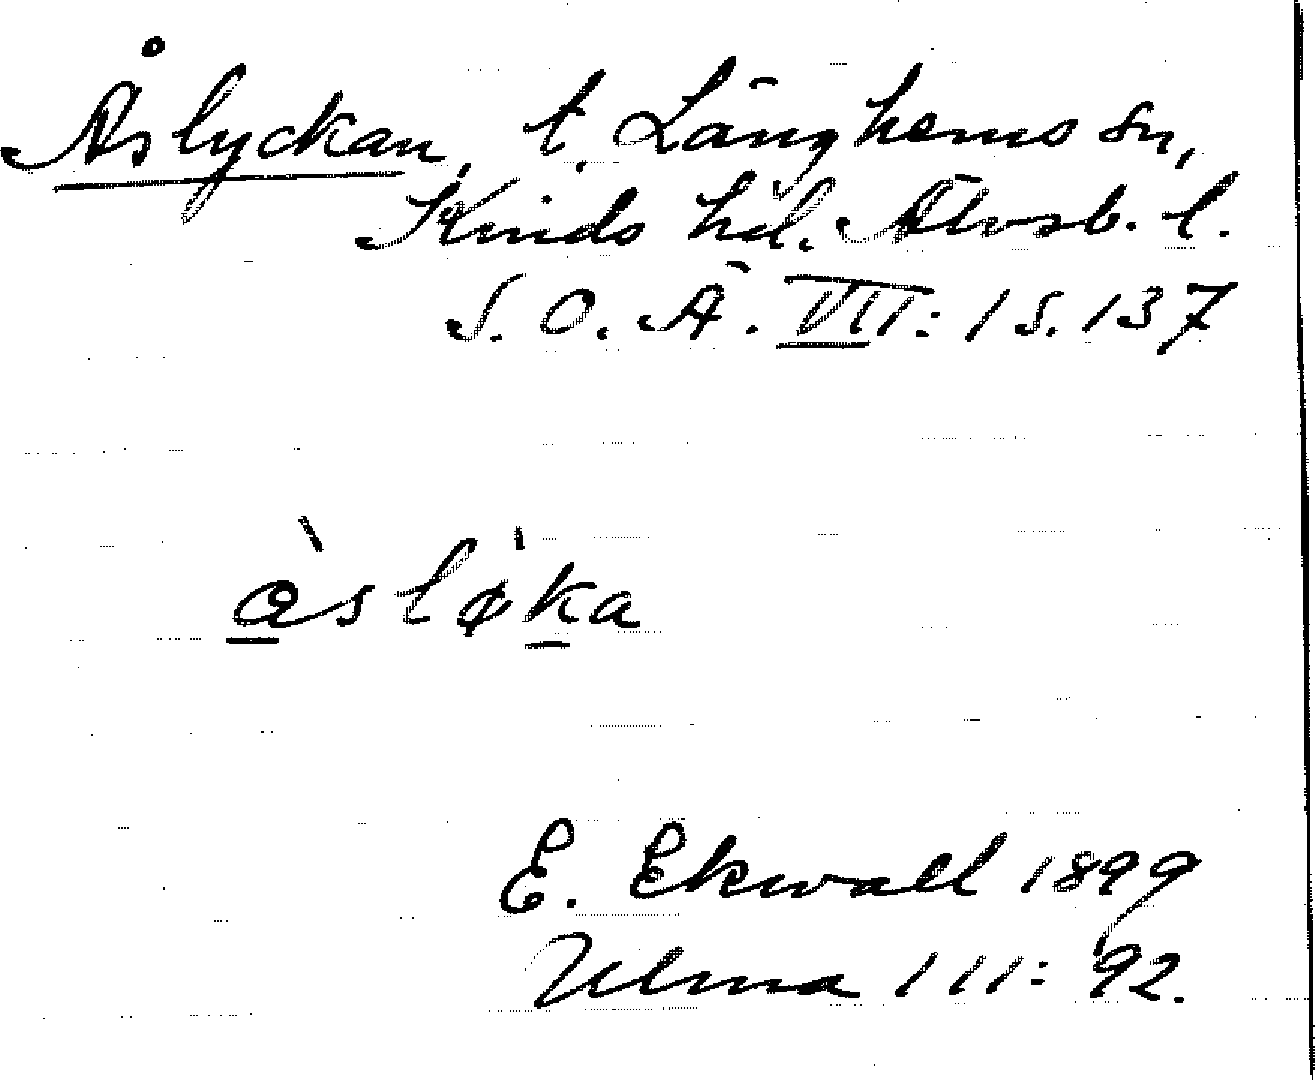 Åslyckan, t. Länghems sn,
Kinds hd. Älvsb. l.
S. O. Ä. VII: 1 s. 137
àslø̀ka
E. Ekwall 1899
Ulma 111: 92.